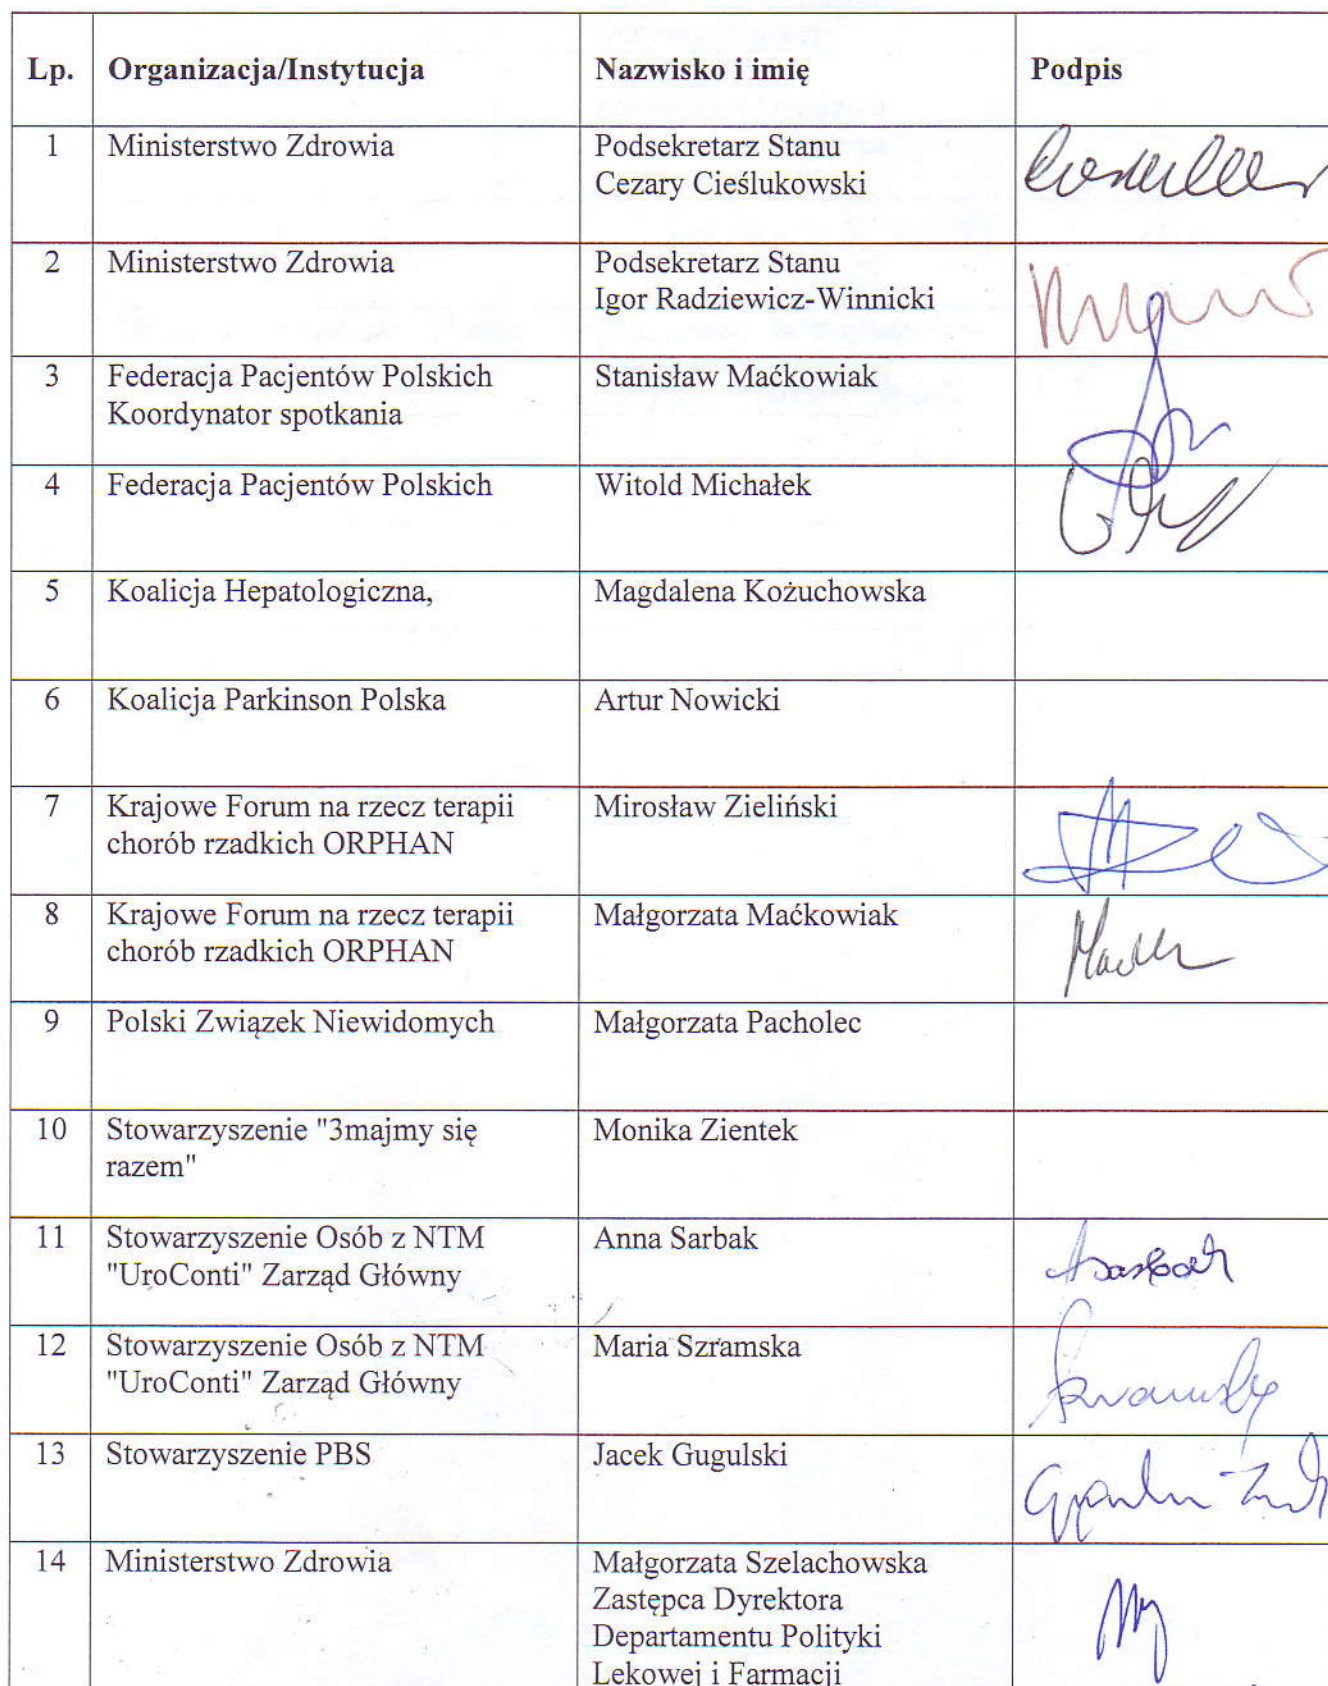 Lp. Organizacja/Instytucja Nazwisko i imię Podpis
1 Ministerstwo Zdrowia Podsekretarz Stanu
Cezary Cieślukowski
2 Ministerstwo Zdrowia Podsekretarz Stanu
Igor Radziewicz-Winnicki
3 Federacja Pacjentów Polskich Stanisław Maćkowiak
Koordynator spotkania
4 Federacja Pacjentów Polskich Witold Michałek
5 Koalicja Hepatologiczna, Magdalena Kożuchowska
6 Koalicja Parkinson Polska Artur Nowicki
7 Krajowe Forum na rzecz terapii Mirosław Zieliński
chorób rzadkich ORPHAN
8 Krajowe Forum na rzecz terapii Małgorzata Maćkowiak
chorób rzadkich ORPHAN
9 Polski Związek Niewidomych Małgorzata Pacholec
10 Stowarzyszenie "3majmy się Monika Zientek
razem"
11 Stowarzyszenie Osób z NTM Anna Sarbak
"UroConti" Zarząd Główny
12 Stowarzyszenie Osób z NTM Maria Szramska
"UroConti" Zarząd Główny
13 Stowarzyszenie PBS Jacek Gugulski
14 Ministerstwo Zdrowia Małgorzata Szelachowska
Zastępca Dyrektora
Departamentu Polityki
Lekowej i Farmacji